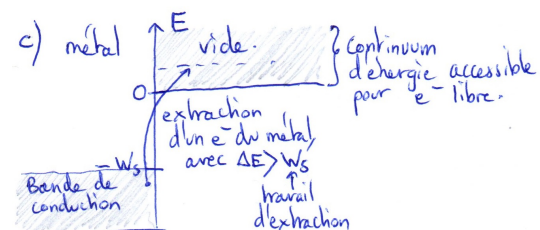 c) métal
E
vide.
continuum
d'énergie accessible
pour e⁻ libre.
0
extraction
d'un e⁻ du métal,
avec ΔE > Ws
↑
travail
d'extraction
- Ws
Bande de
conduction